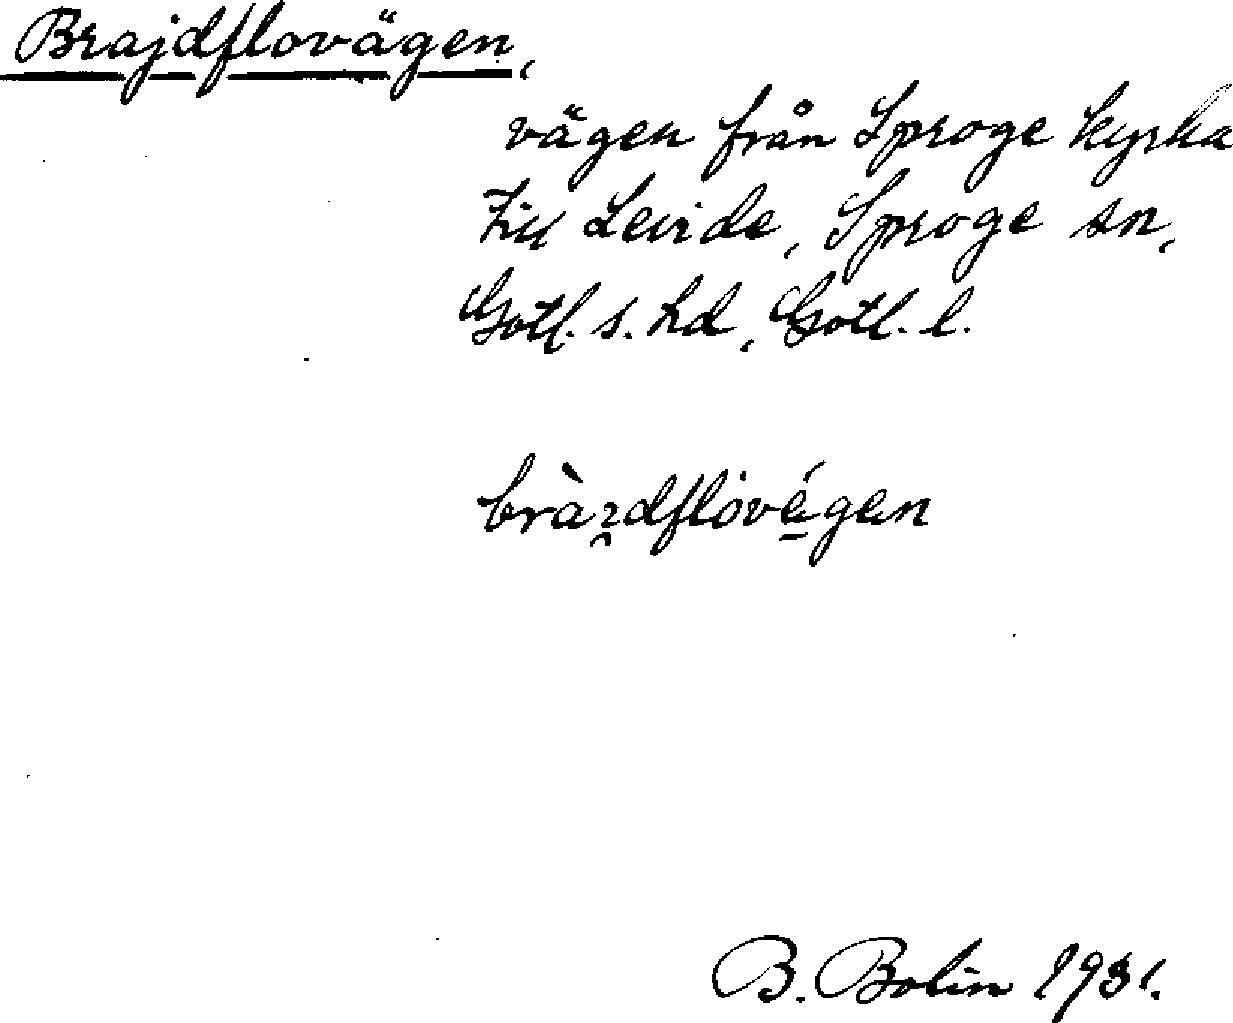 Brajdflovägen,
vägen från Sproge kyrka
till Levide, Sproge sn,
Gotl. s. hd, Gotl. l.
B. Bolin 1931.